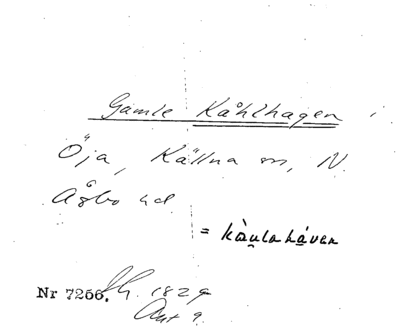 Gamle Kåhlhagen
Öja, Källna sn, N.
Åsbo hd
= kàulahávan
Nr 7256. Sh. 1829
Akt 9